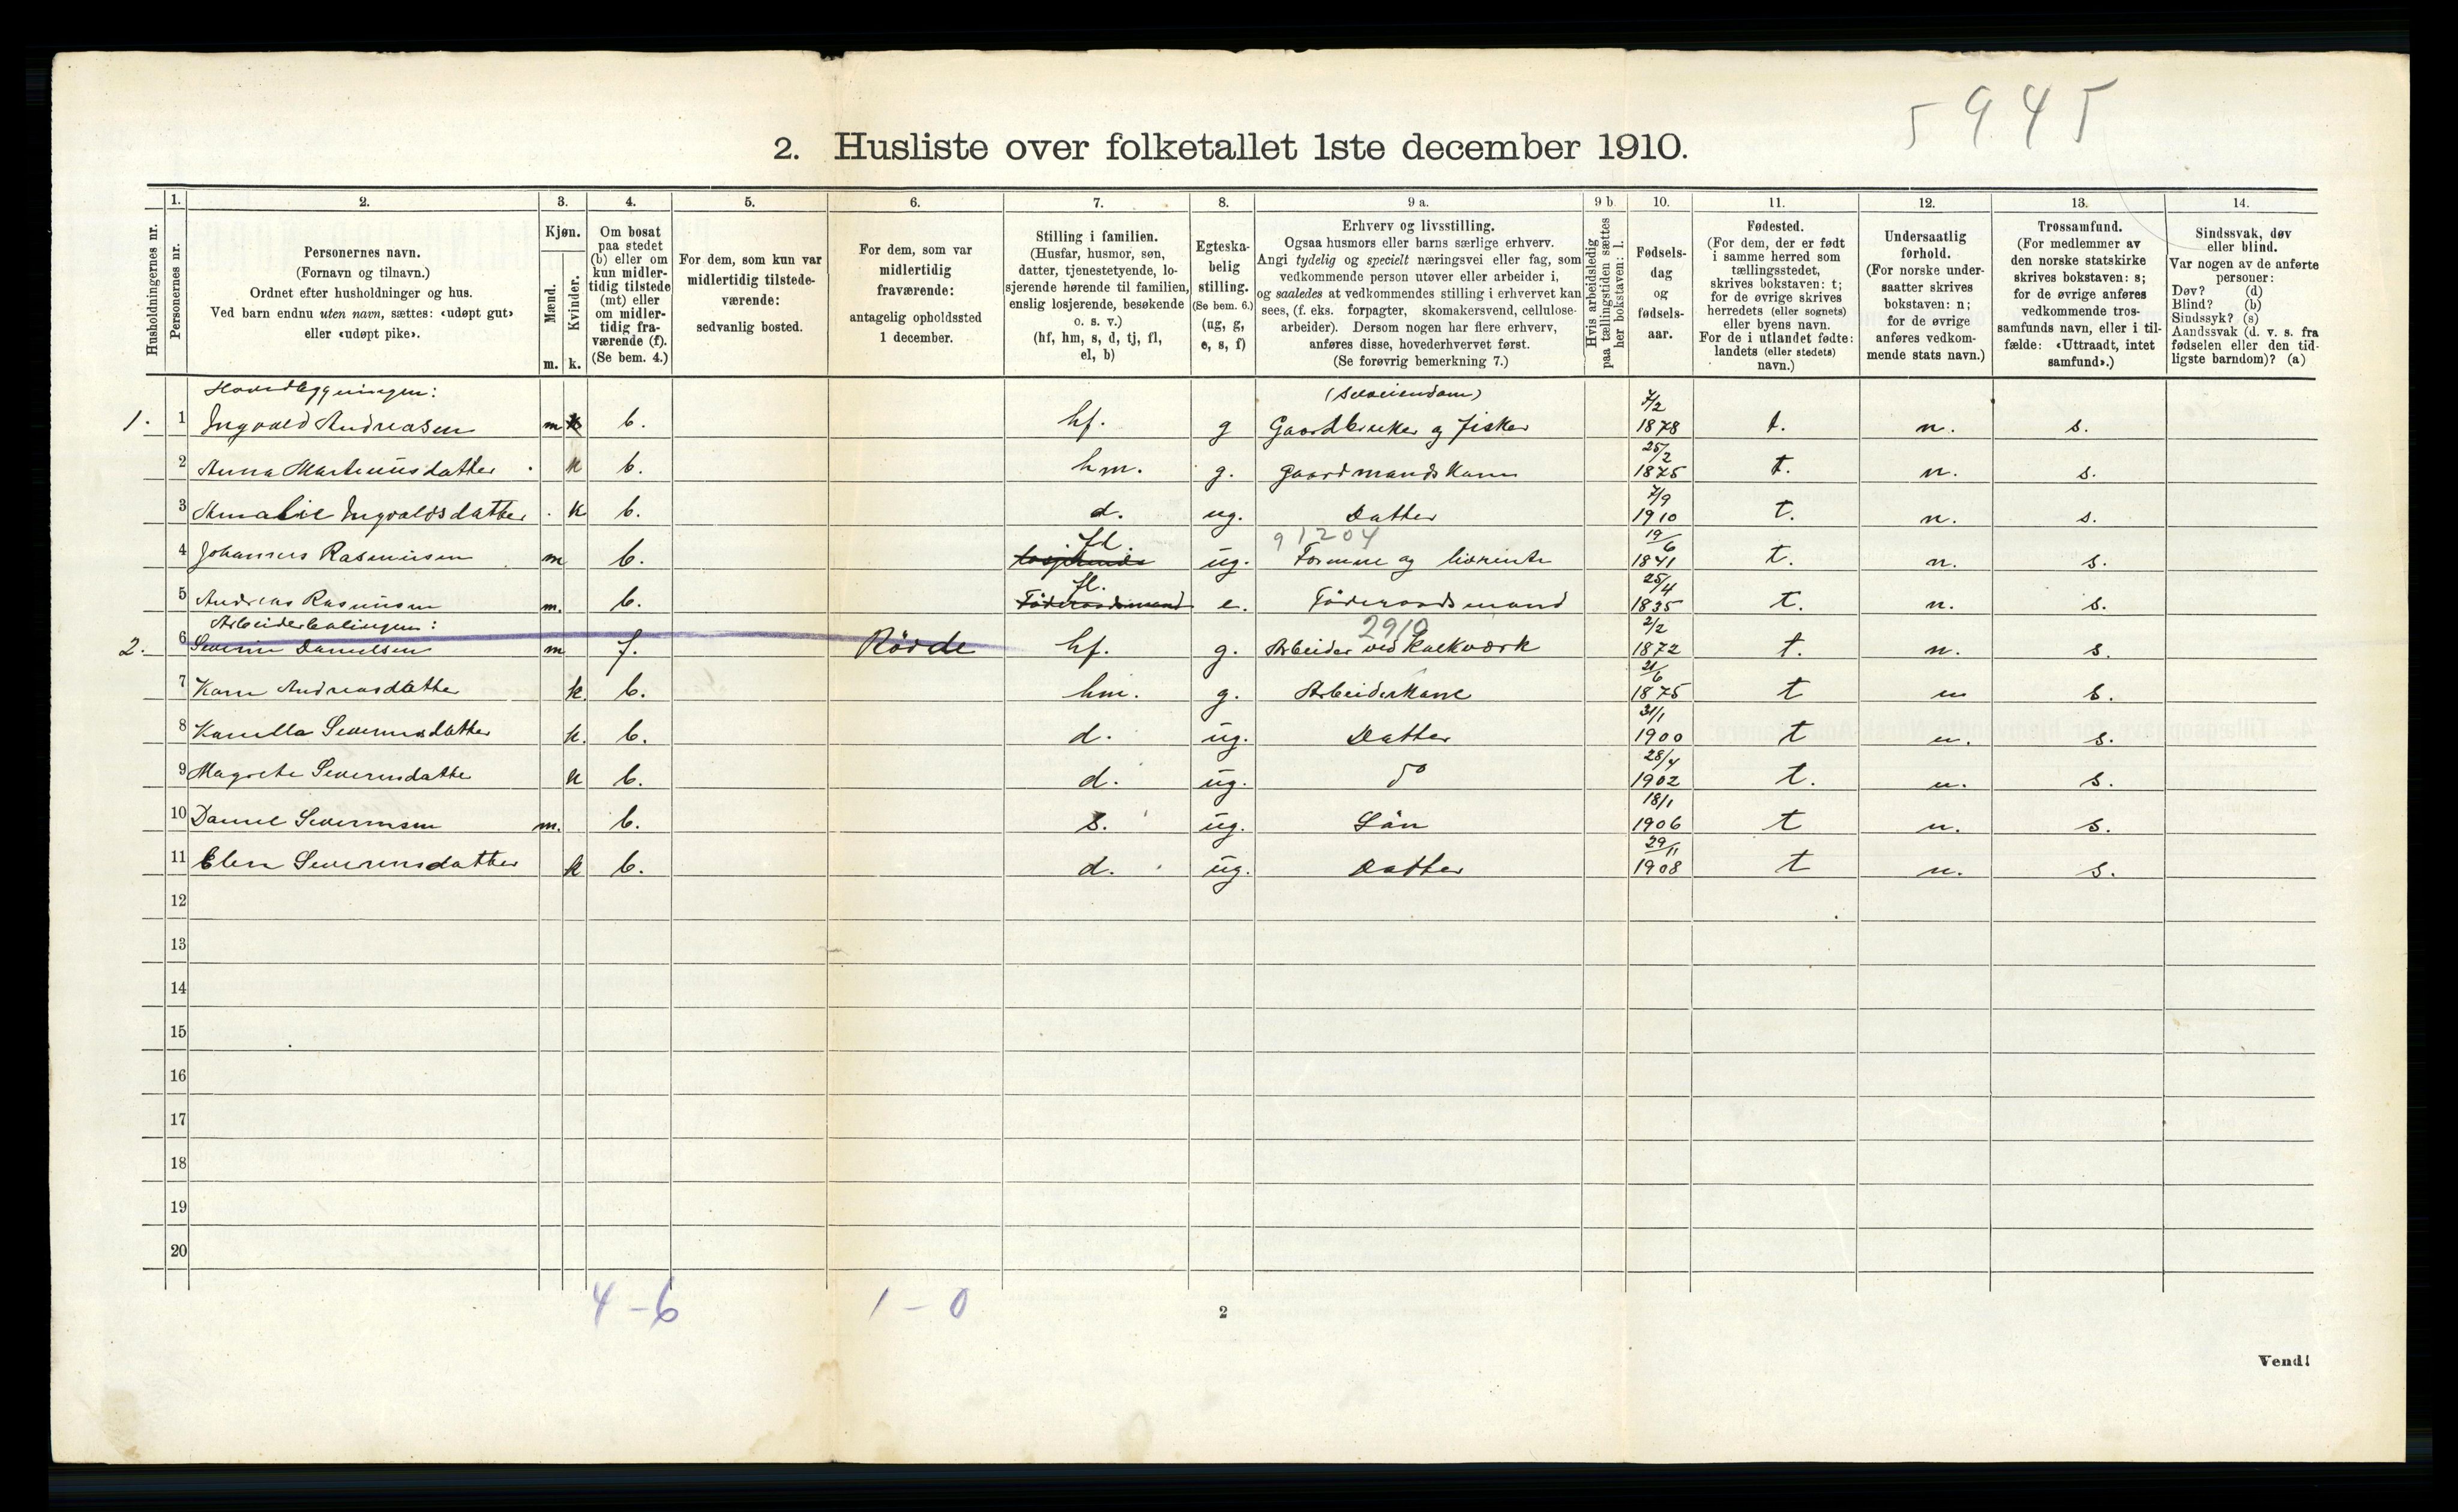 5945
2. Husliste over folketallet 1ste december 1910.
1. 2. 3. 4. 5. 6. 7. 8. 9 a. 9 b. 10. 11. 12. 13. 14.
Husholdningernes nr.
Personernes nr.
Personernes navn.
(Fornavn og tilnavn.)
Ordnet efter husholdninger og hus.
Ved barn endnu uten navn, sættes: «udøpt gut»
eller «udøpt pike».
Kjøn.
Mænd.
Kvinder.
m. k.
Om bosat
paa stedet
(b) eller om
kun midler-
tidig tilstede
(mt) eller
om midler-
tidig fra-
værende (f).
(Se bem. 4.)
For dem, som kun var
midlertidig tilstede-
værende:
sedvanlig bosted.
For dem, som var
midlertidig
fraværende:
antagelig opholdssted
1 december.
Stilling i familien.
(Husfar, husmor, søn,
datter, tjenestetyende, lo-
sjerende hørende til familien,
enslig losjerende, besøkende
o. s. v.)
(hf, hm, s, d, tj, fl,
el, b)
Egteska-
belig
stilling.
(Se bem. 6.)
(ug, g,
e, s, f)
Erhverv og livsstilling.
Ogsaa husmors eller barns særlige erhverv.
Angi tydelig og specielt næringsvei eller fag, som
vedkommende person utøver eller arbeider i,
og saaledes at vedkommendes stilling i erhvervet kan
sees, (f. eks. forpagter, skomakersvend, cellulose-
arbeider). Dersom nogen har flere erhverv,
anføres disse, hovederhvervet først.
(Se forøvrig bemerkning 7.)
Hvis arbeidsledig
paa tællingstiden sættes
her bokstaven: l.
Fødsels-
dag
og
fødsels-
aar.
Fødested.
(For dem, der er født
i samme herred som
tællingsstedet,
skrives bokstaven: t;
for de øvrige skrives
herredets (eller sognets)
eller byens navn.
For de i utlandet fødte:
landets (eller stedets)
navn.)
Undersaatlig
forhold.
(For norske under-
saatter skrives
bokstaven: n;
for de øvrige
anføres vedkom-
mende stats navn.)
Trossamfund.
(For medlemmer av
den norske statskirke
skrives bokstaven: s;
for de øvrige anføres
vedkommende tros-
samfunds navn, eller i til-
fælde: «Uttraadt, intet
samfund».)
Sindssvak, døv
eller blind.
Var nogen av de anførte
personer:
Døv? (d)
Blind? (b)
Sindssyk? (s)
Aandssvak (d. v. s. fra
fødselen eller den tid-
ligste barndom)? (a)
Hovedbygningen:
(Selveiendom)
1. 1 Ingvald Andreasen m k b. hf. g Gaardbruker og fisker 7/2 1878 t. n. s.
2 Anna Martinusdatter k b. hm. g. Gaardmandskone 25/2 1875 t. n. s.
3 Amalie Ingvaldsdatter k b. d. ug. Datter 7/9 1910 t. n. s.
91204
4 Johannes Rasmusen m b. losjerende fl. ug. Formue og livrente 19/6 1841 t. n. s.
5 Andreas Rasmusen m. b. Föderaadsmand fl. e. Föderaadsmand 25/4 1835 t. n. s.
Arbeiderbolingen:
2910
2. 6 Severin Danielsen m f. Rödde hf. g. Arbeider ved Kalkværk 2/2 1872 t. n. s.
7 Karn Andreasdatter k. b. hm. g. Arbeiderkone 21/6 1875 t n s.
8 Kamilla Severinsdatter k. b. d. ug. Datter 31/1 1900 t n. s.
9 Magrete Severinsdatter k b. d. ug. do 28/4 1902 t. n. s.
10 Daniel Severinsen m. b. s. ug. Sön 18/1 1906 t n. s.
11 Elen Severinsdatter k b. d. ug. Datter 29/11 1908 t n. s.
12
13
14
15
16
17
18
19
20
4-6 1-0
2
Vend!